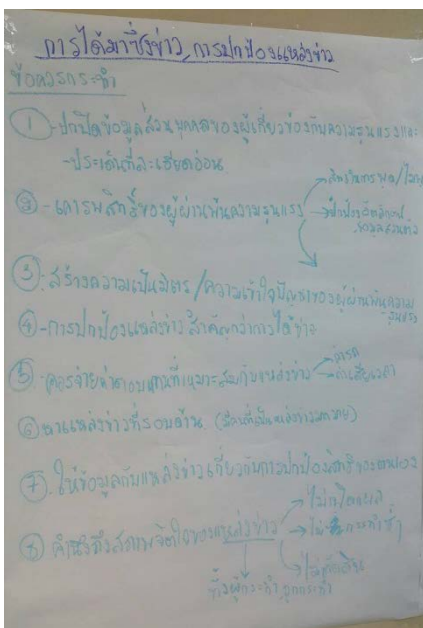 การได้มาซึ่งข่าว, การปกป้องแหล่งข่าว
ข้อควรกระทำ
① - ปกปิดข้อมูลส่วนบุคคลของผู้เกี่ยวข้องกับความรุนแรงและ
- ประเด็นที่ละเอียดอ่อน
② - เคารพสิทธิ์ของผู้ผ่านพ้นความรุนแรง
③ - สร้างความเป็นมิตร / ความเข้าใจปัญหาของผู้ผ่านพ้นความรุนแรง
④ - การปกป้องแหล่งข่าวสำคัญกว่าการได้ข่าว
⑤ - ควรจ่ายค่าตอบแทนที่เหมาะสมกับแหล่งข่าว
ค่าเสียเวลา
⑥ หาแหล่งข่าวที่รอบด้าน
⑦. ให้ข้อมูลกับแหล่งข่าวเกี่ยวกับการปกป้องสิทธิของตนเอง
⑧ คำนึงถึงสภาพจิตใจของแหล่งข่าว
ไม่กระทำซ้ำ
ทั้งผู้กระทำ, ถูกกระทำ